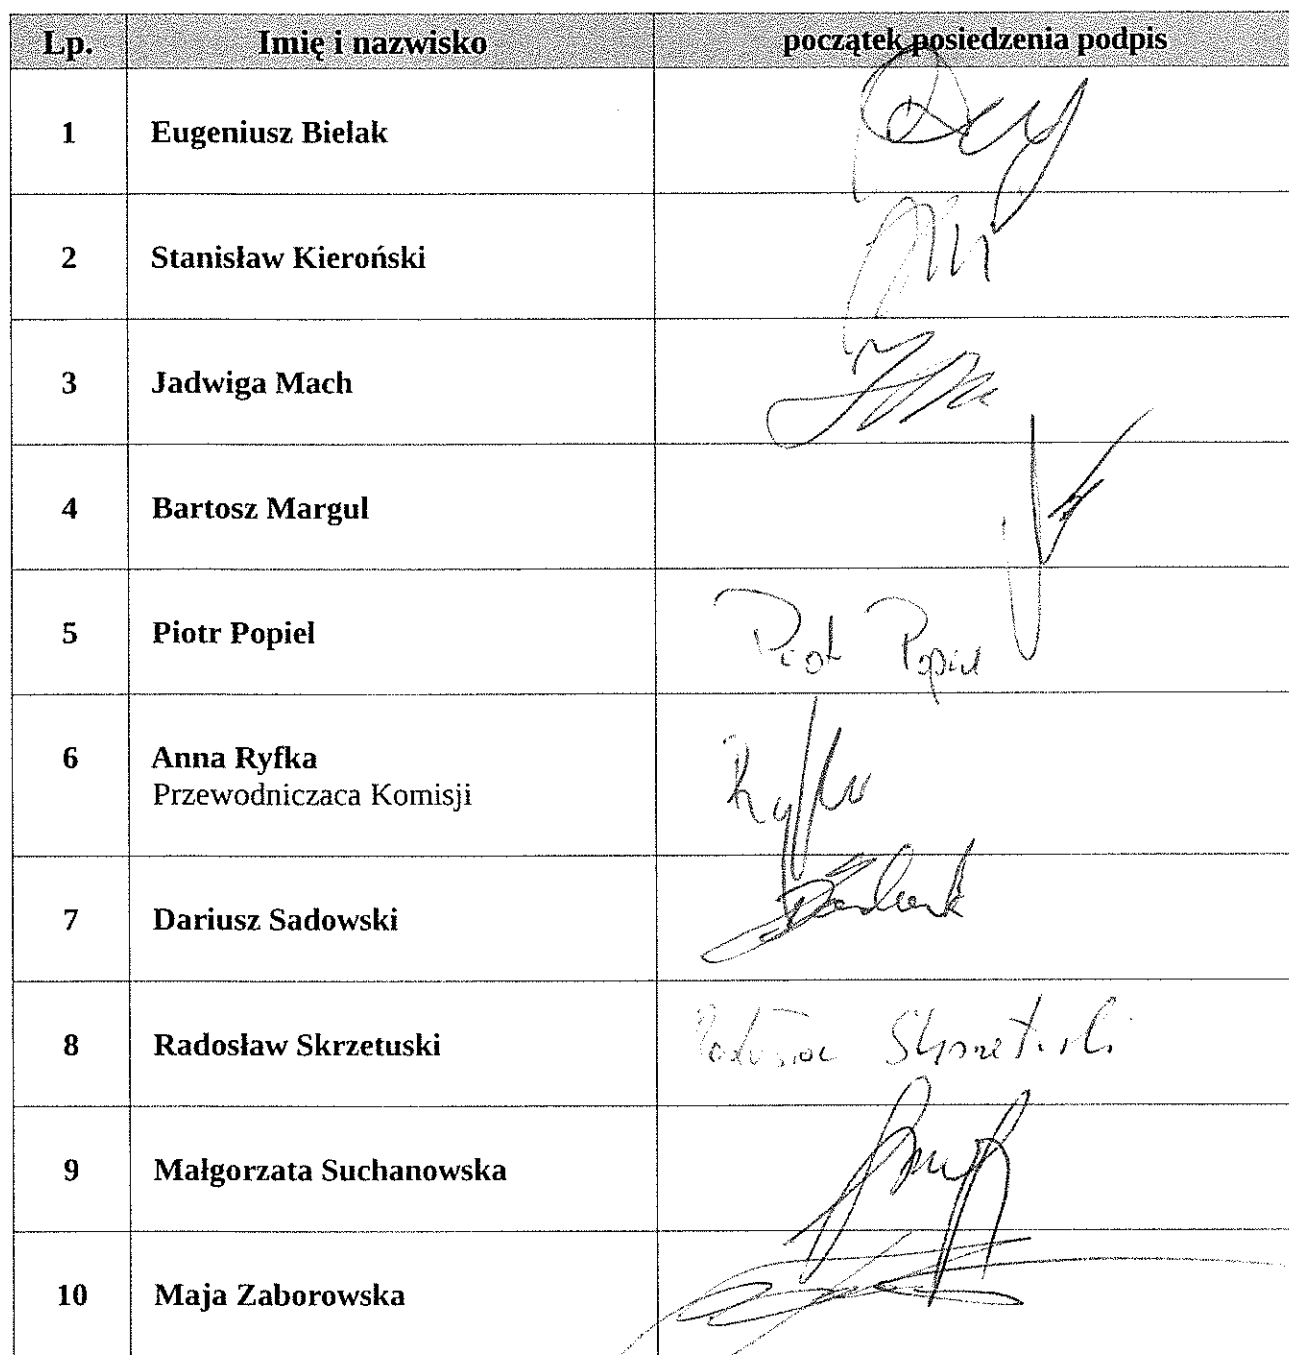 Lp. Imię i nazwisko początek posiedzenia podpis
1 Eugeniusz Bielak
2 Stanisław Kieroński
3 Jadwiga Mach
4 Bartosz Margul
5 Piotr Popiel Piotr Popiel
6 Anna Ryfka Ryfka
Przewodniczaca Komisji
7 Dariusz Sadowski
8 Radosław Skrzetuski Radosław Skrzetuski
9 Małgorzata Suchanowska
10 Maja Zaborowska